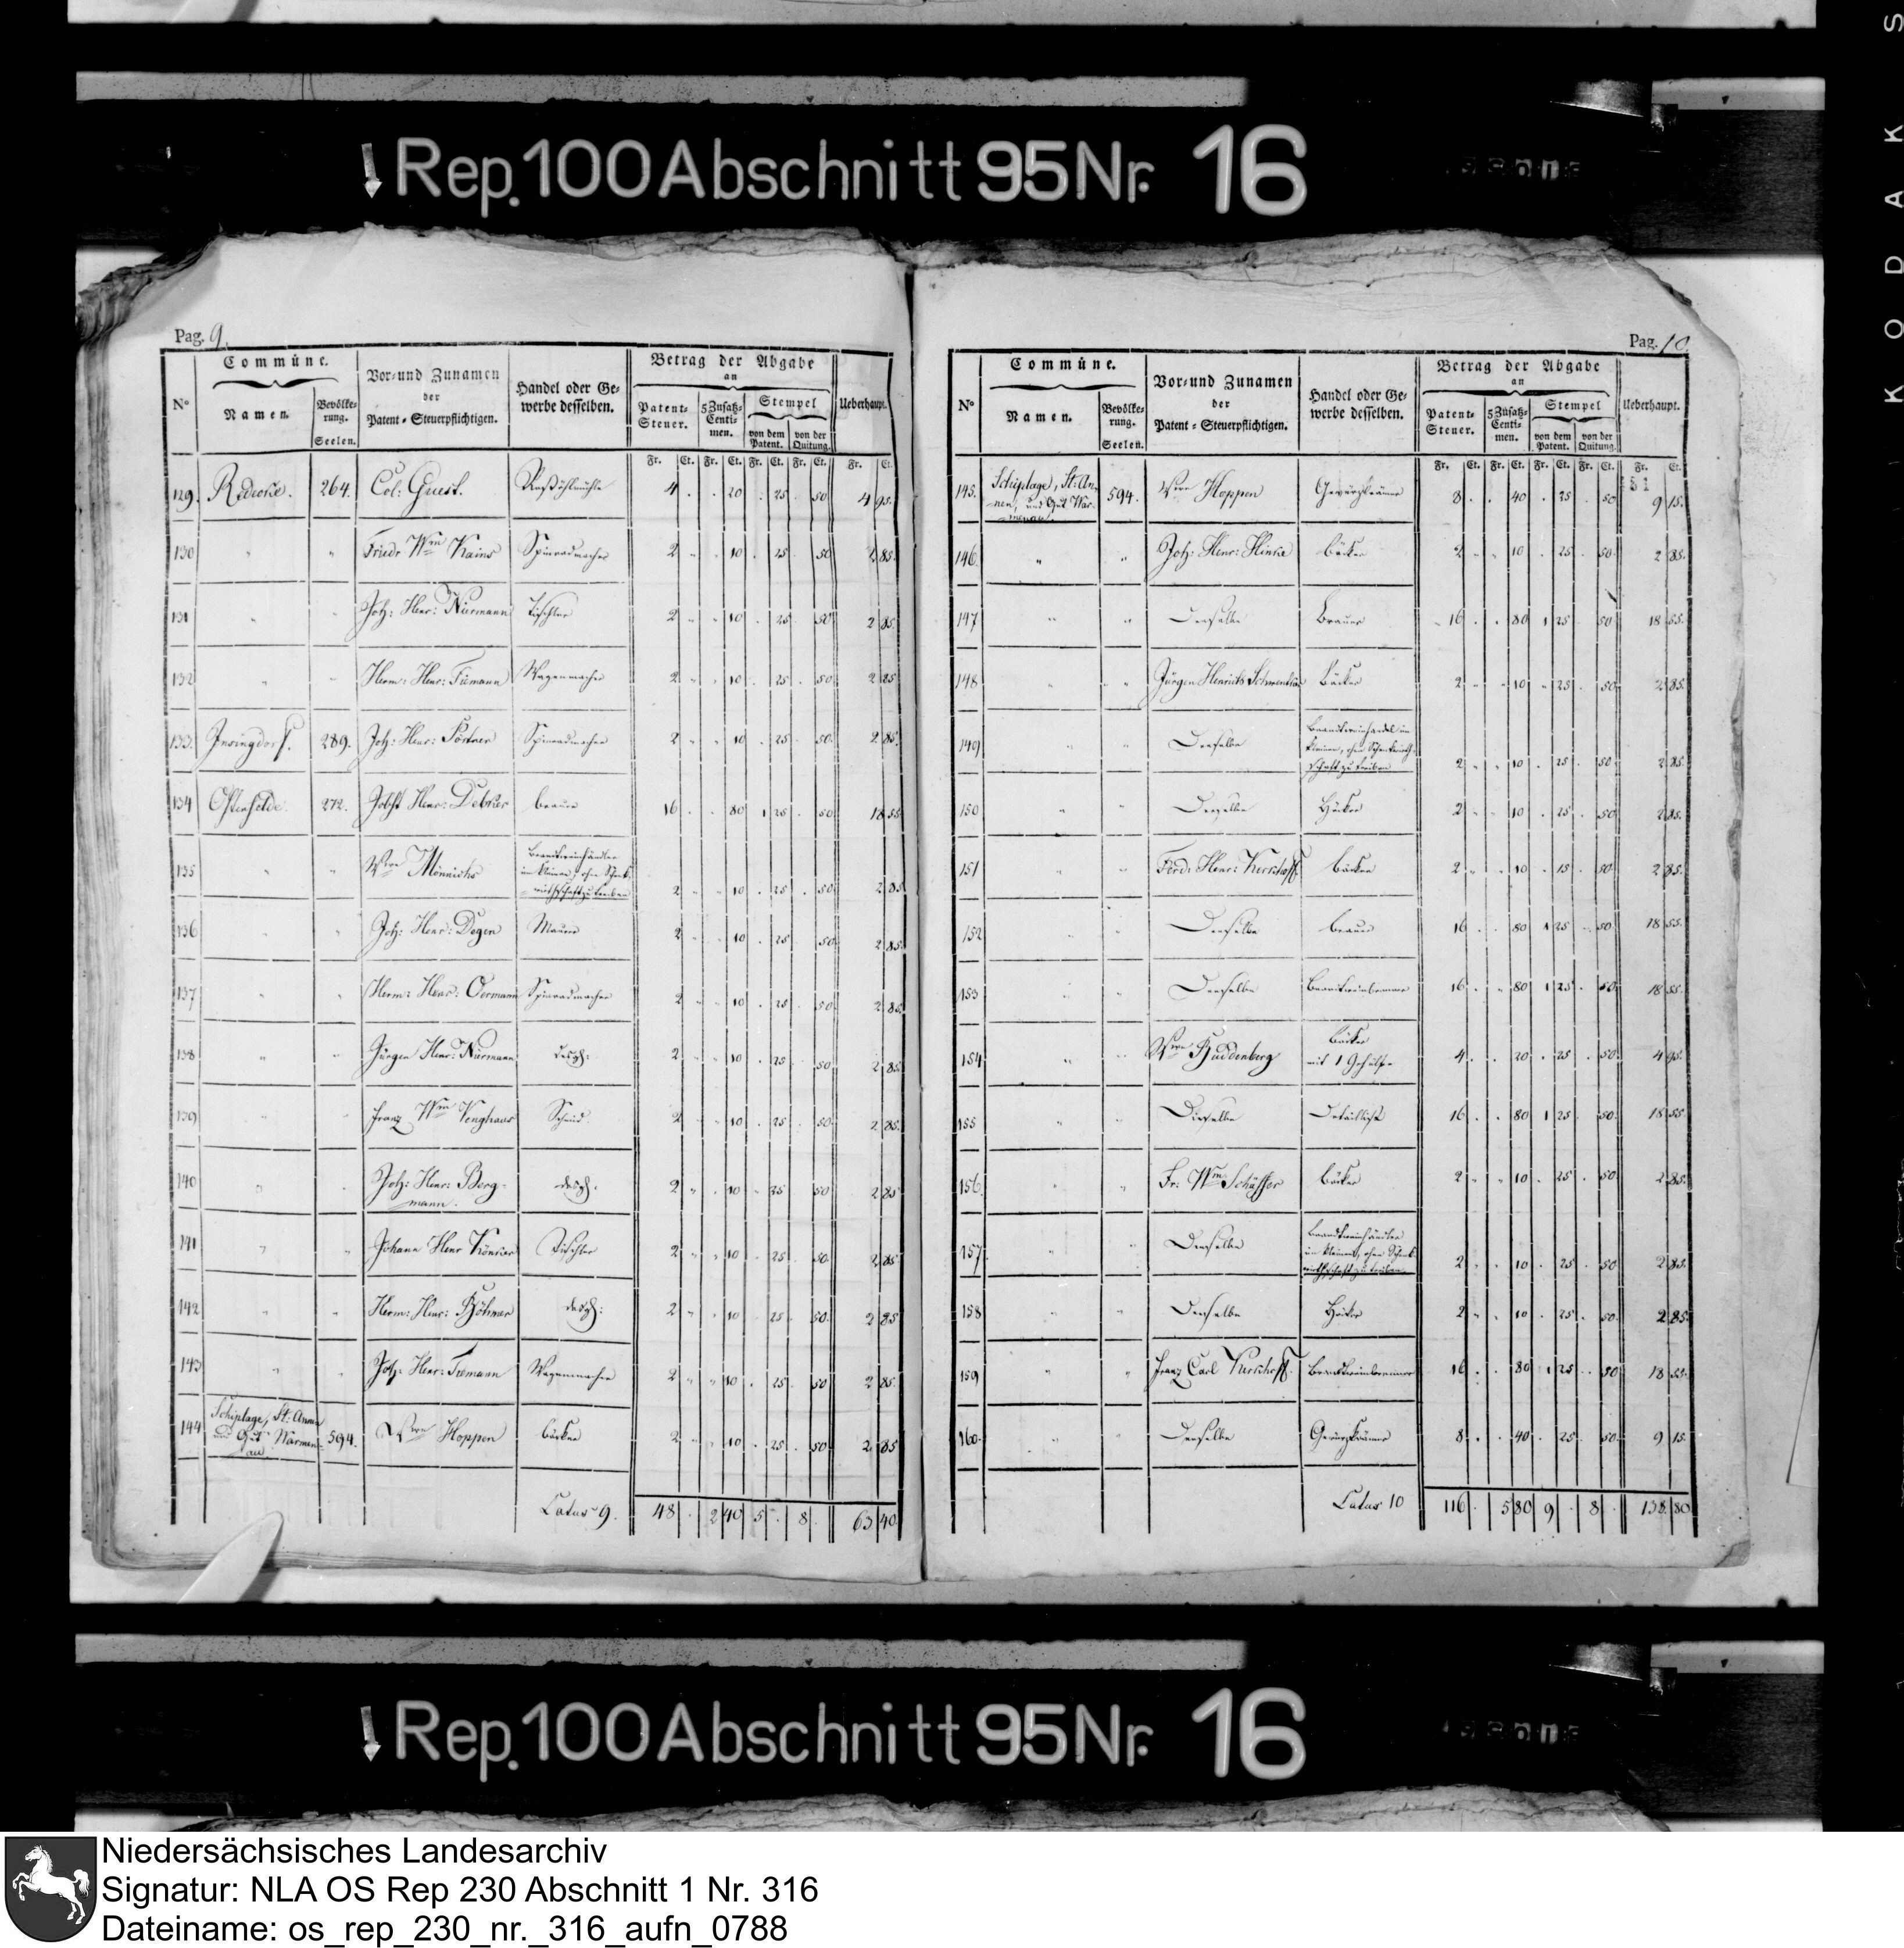 KODAK S
Rep. 100 Abschnitt 95 Nr. 16
Pag. 9.
N° Commüne. Vor- und Zunamen der Patent-Steuerpflichtigen. Handel oder Gewerbe desselben. Betrag der Abgabe an Ueberhaupt.
Namen. Bevölkerung. Seelen. Patent-Steuer. 5 Zusatz-Centimen. Stempel von dem Patent. von der Quitung.
Fr. Ct. Fr. Ct. Fr. Ct. Fr. Ct. Fr. Ct.
129. Redecke. 264. Col: Guest. Roßöhlmühle 4 . . 20 . 25 . 50 4 95.
130 " " Friedr Wm Kains Spinradmacher 2 " " 10 . 25 . 50 2 85.
131 " " Joh: Henr: Niermann Tischler 2 " " 10 . 25 . 50 2 85.
132 " " Herm: Henr: Tiemann Wagenmacher 2 " " 10 . 25 . 50 2 85
133. Insingdorf. 289. Joh: Henr: Pörtner Spinradmacher 2 " " 10 . 25 . 50 2 85.
134 Ostenfelde. 272. Jobst Henr: Brauer 16 . . 80 1 25 . 50 18 55
135 " " Wwe Mönnichs Brandtweinhändler im kleinen, ohne Schenkwirthschaft zu treiben 2 " " 10 . 25 . 50 2 85
136 " " Joh: Henr: Degen Maurer 2 " " 10 . 25 . 50 2 85.
137 " " Herm: Henr: Oermann Spinradmacher 2 " " 10 . 25 . 50 2 85.
138 " " Jürgen Henr: Niermann desgl: 2 " " 10 . 25 . 50 2 85.
139 " " Franz Wm Venghaus Schmid. 2 " " 10 . 25 . 50 2 85.
140 " " Joh: Henr: Bergmann. desgl. 2 " " 10 . 25 . 50 2 85
141 " " Johann Henr Könker Tischler 2 " " 10 . 25 . 50 2 85.
142 " " Herm: Henr: Böhmer desgl: 2 " " 10 . 25 . 50. 2 85
143 " " Joh: Henr: Tiemann Wagenmacher 2 " " 10 . 25 . 50 2 85.
144 Schiplage, St: Annen und Gut Warmenau 594. Wwe Hoppen Bäcker 2 " " 10 . 25 . 50 2 85
Latus 9. 48 . 2 40 5 . 8 . 63 40
Pag. 10.
N° Commüne. Vor- und Zunamen der Patent-Steuerpflichtigen. Handel oder Gewerbe desselben. Betrag der Abgabe an Ueberhaupt.
Namen. Bevölkerung. Seelen. Patent-Steuer. 5 Zusatz-Centimen. Stempel von dem Patent. von der Quitung.
Fr. Ct. Fr. Ct. Fr. Ct. Fr. Ct. Fr. Ct.
51
145. Schiplage, St: Annen, und Gut Warmenau. 594. Wwe Hoppen Gewürzkrämer 8 . . 40 . 25 . 50 9 15.
146. " " Joh: Henr: Hinke Bäcker 2 " " 10 . 25 . 50 2 85.
147 " " Derselbe Brauer 16 . . 80 1 25 . 50 18 55.
148 " " Jürgen Henrich Bäcker 2 " " 10 " 25 . 50 2 85.
149 " " Derselbe Brandtweinhandel im kleinen, ohne Schenkwirthschaft zu treiben 2 " " 10 . 25 . 50 2 85.
150 " " Derselbe Höcker 2 " " 10 . 25 . 50 2 85.
151 " " Ferd: Henr: Kerckhoff Bäcker 2 " " 10 . 15 . 50 2 85.
152 " " Derselbe Brauer 16 . . 80 1 25 . 50 18 55.
153 " " Derselbe Brandtweinbrenner 16 . . 80 1 25 . 50 18 55.
154 " " Wwe Buddenberg Bäcker mit 1 Gehülfe 4 . . 20 . 25 . 50 4 95.
155 " " Dieselbe Detaillist 16 . . 80 1 25 . 50 18 55
156. " " Fr: Wm Schäffer Bäcker 2 " " 10 . 25 . 50 2 85.
157. " " Derselbe Brandtweinhändler im kleinen, ohne Schenkwirthschaft zu treiben 2 . . 10 . 25 . 50 2 85.
158 " " Derselbe Höcker 2 " . 10 . 25 . 50 2 85.
159 " " Franz Carl Kerckhoff. Brandtweinbrenner 16 . . 80 1 25 . . 50 18 55.
160. " " Derselbe Gewürzkrämer 8 . . 40 . 25 . 50 9 15.
Latus 10 116 . 5 80 9 . 8 . 138 80
Rep. 100 Abschnitt 95 Nr. 16
Niedersächsisches Landesarchiv
Signatur: NLA OS Rep 230 Abschnitt 1 Nr. 316
Dateiname: os_rep_230_nr._316_aufn_0788